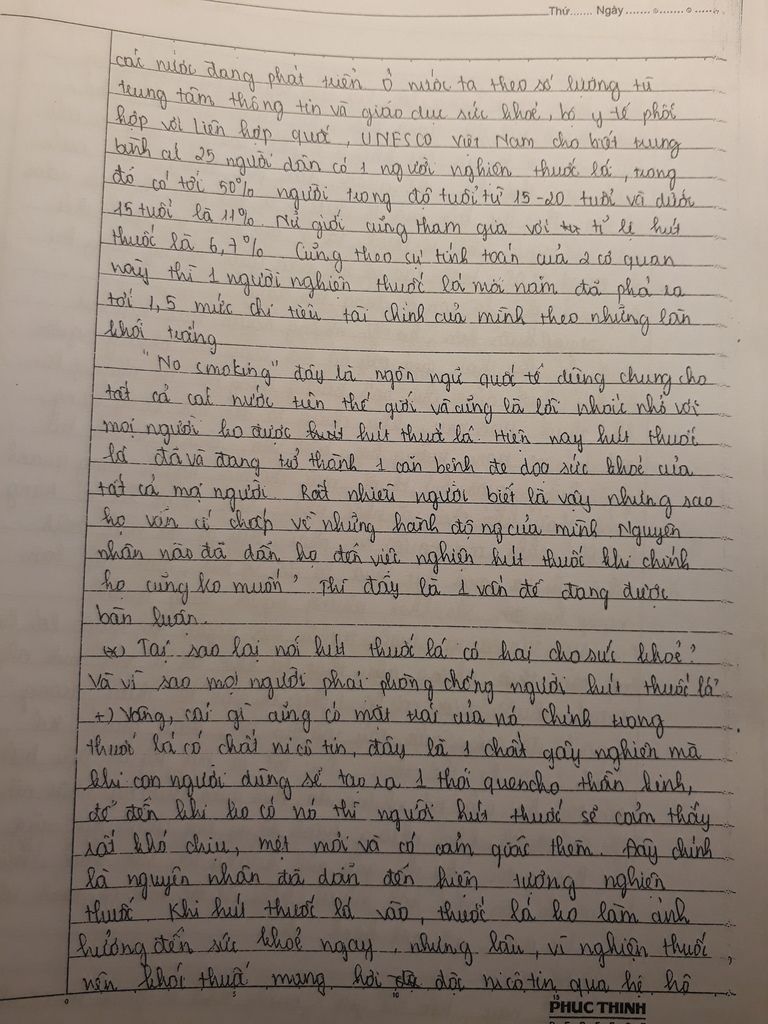 Thứ....... Ngày ....... o ....... o .......
các nước đang phát triển ở nước ta theo số lượng từ
trung tâm thông tin và giáo dục sức khoẻ, bộ y tế phối
hợp với liên hợp quốc, UNESCO Việt Nam cho biết trung
bình cứ 25 người dân có 1 người nghiện thuốc lá, trong
đó có tới 50% người trong độ tuổi từ 15-20 tuổi và dưới
15 tuổi là 11%. Nữ giới cũng tham gia với tỉ lệ hút
thuốc là 6,7%. Cũng theo sự tính toán của 2 cơ quan
này thì 1 người nghiện thuốc lá mỗi năm đã phả ra
tới 1,5 mức chi tiêu tài chính của mình theo những làn
khói trắng
"No smoking" đây là ngôn ngữ quốc tế dùng chung cho
tất cả các nước trên thế giới và cũng là lời nhắc nhở với
mọi người ko được hút thuốc lá. Hiện nay hút thuốc
lá đã và đang trở thành 1 căn bệnh đe dọa sức khoẻ của
tất cả mọi người. Rất nhiều người biết là vậy nhưng sao
họ vẫn cố chấp về những hành động của mình. Nguyên
nhân nào đã dẫn họ đến việc nghiện hút thuốc khi chính
họ cũng ko muốn? Thì đây là 1 vấn đề đang được
bàn luận.
(*) Tại sao lại nói hút thuốc lá có hại cho sức khoẻ?
Và vì sao mọi người phải phòng chống người hút thuốc lá?
+) Vâng, cái gì cũng có mặt trái của nó. Chính trong
thuốc lá có chất nicôtin, đây là 1 chất gây nghiện mà
khi con người dùng sẽ tạo ra 1 thói quen cho thần kinh,
để đến khi ko có nó thì người hút thuốc sẽ cảm thấy
rất khó chịu, mệt mỏi và có cảm giác thèm. Đây chính
là nguyên nhân đã dẫn đến hiện tượng nghiện
thuốc. Khi hút thuốc lá vào, thuốc lá ko làm ảnh
hưởng đến sức khoẻ ngay, nhưng lâu, vì nghiện thuốc,
nên khói thuốc mang hơi độc nicôtin qua hệ hô
0 5 10 15
PHUC THINH